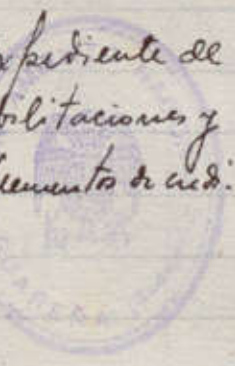 xpediente de
bilitaciones y
lementos de credi.